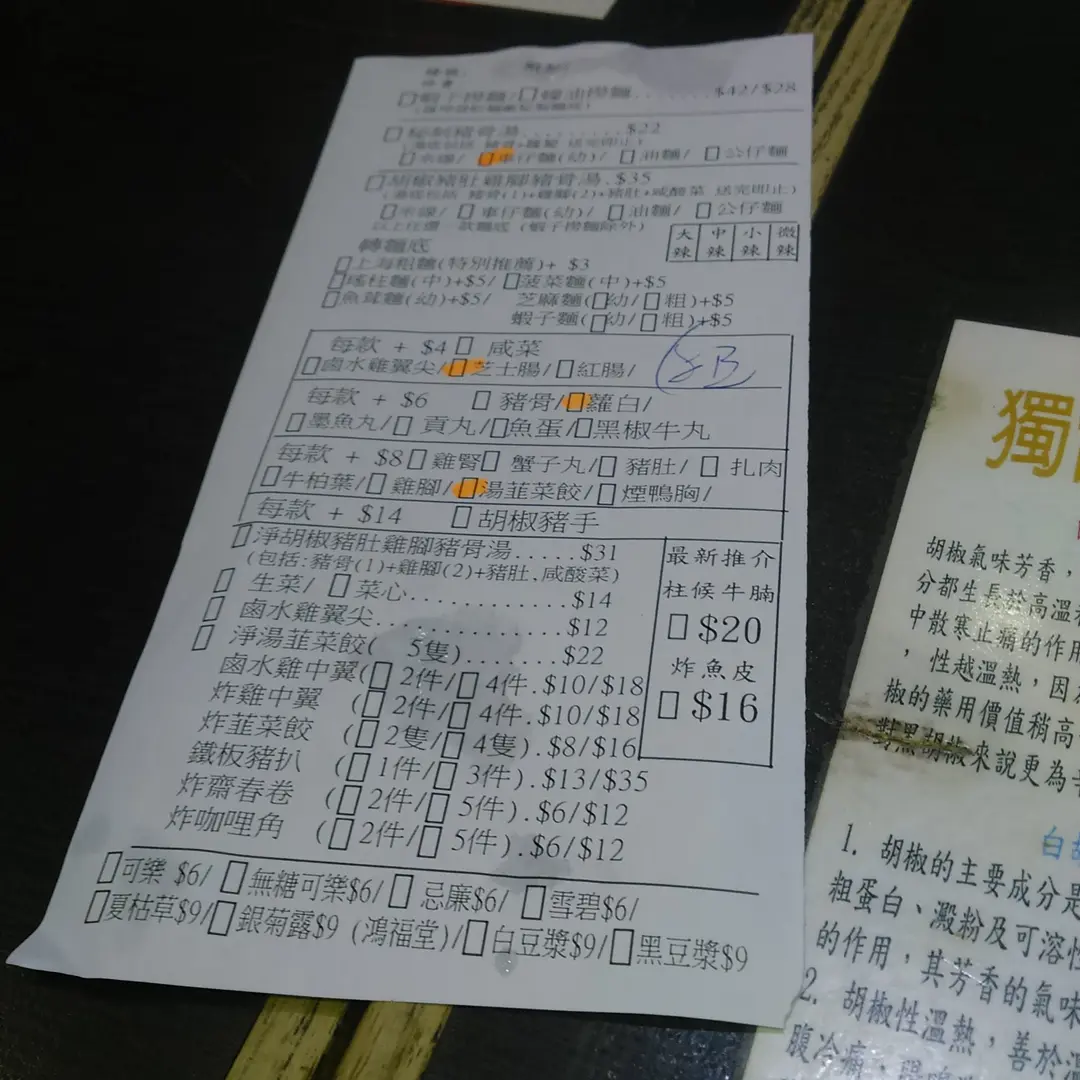 蝦子撈麵/ 蠔油撈麵........$42/$28
秘制豬骨湯.........$22
米線/ 車仔麵(幼)/ 油麵/ 公仔麵
胡椒豬肚雞腳豬骨湯.$35
(湯底包括 豬骨(1)+雞腳(2)+豬肚+咸酸菜 送完即止)
米線/ 車仔麵(幼)/ 油麵/ 公仔麵
以上任選一款麵底 (蝦子撈麵除外)
大辣 中辣 小辣 微辣
轉麵底
上海粗麵(特別推薦)+ $3
瑤柱麵(中)+$5/ 菠菜麵(中)+$5
魚茸麵(幼)+$5/ 芝麻麵(幼/ 粗)+$5
蝦子麵(幼/ 粗)+$5
每款 + $4 咸菜
8B
鹵水雞翼尖/ 芝士腸/ 紅腸/
每款 + $6 豬骨/ 蘿白/
墨魚丸/ 貢丸/ 魚蛋/ 黑椒牛丸
每款 + $8 雞腎 蟹子丸/ 豬肚/ 扎肉
牛柏葉/ 雞腳/ 湯韮菜餃/ 煙鴨胸/
每款 + $14 胡椒豬手
淨胡椒豬肚雞腳豬骨湯.....$31
(包括:豬骨(1)+雞腳(2)+豬肚,咸酸菜)
生菜/ 菜心............$14
鹵水雞翼尖.............$12
淨湯韮菜餃( 5隻).......$22
鹵水雞中翼( 2件/ 4件.$10/$18
炸雞中翼 ( 2件/ 4件.$10/$18
炸韮菜餃 ( 2隻/ 4隻).$8/$16
鐵板豬扒 ( 1件/ 3件).$13/$35
炸齋春卷 ( 2件/ 5件).$6/$12
炸咖哩角 ( 2件/ 5件).$6/$12
最新推介
柱候牛腩
$20
炸魚皮
$16
可樂 $6/ 無糖可樂$6/ 忌廉$6/ 雪碧$6/
夏枯草$9/ 銀菊露$9 (鴻福堂)/ 白豆漿$9/ 黑豆漿$9
獨
胡椒氣味芳香，
分都生長於高溫
中散寒止痛的作用
，性越溫熱，因
椒的藥用價值稍高
對黑胡椒來說更為
白胡
1. 胡椒的主要成分是
粗蛋白、澱粉及可溶性
的作用，其芳香的氣味
2. 胡椒性溫熱，善於溫
腹冷痛